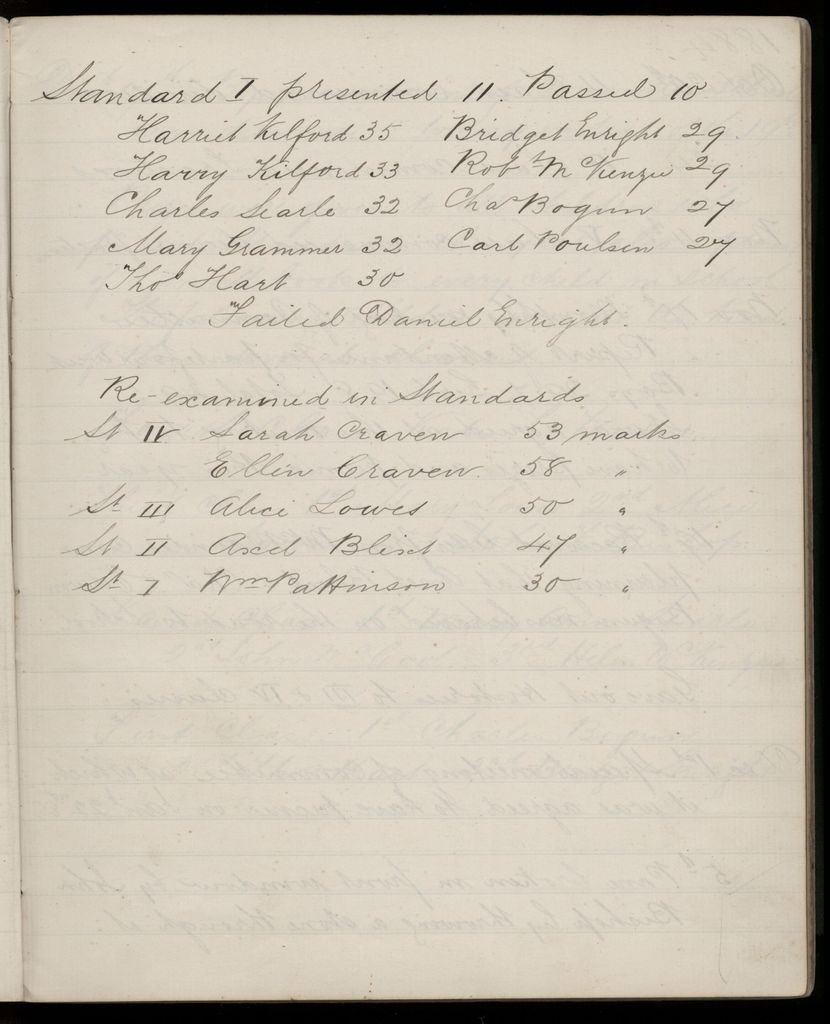 Standard I presented 11. Passed 10
Harriet Kilford 35 Bridget Enright 29
Harry Kilford 33 Rob McKenzie 29
Charles Searle 32 Chas Bogun 27
Mary Grammer 32 Carl Poulsen 27
Thos Hart 30
Failed Daniel Enright.
Re-examined in Standards
St IV Sarah Craven 53 marks
Ellen Craven. 58 "
St III Alice Lowes 50 "
St II Axel Blixt 47 "
St I Wm Pattinson 30 "